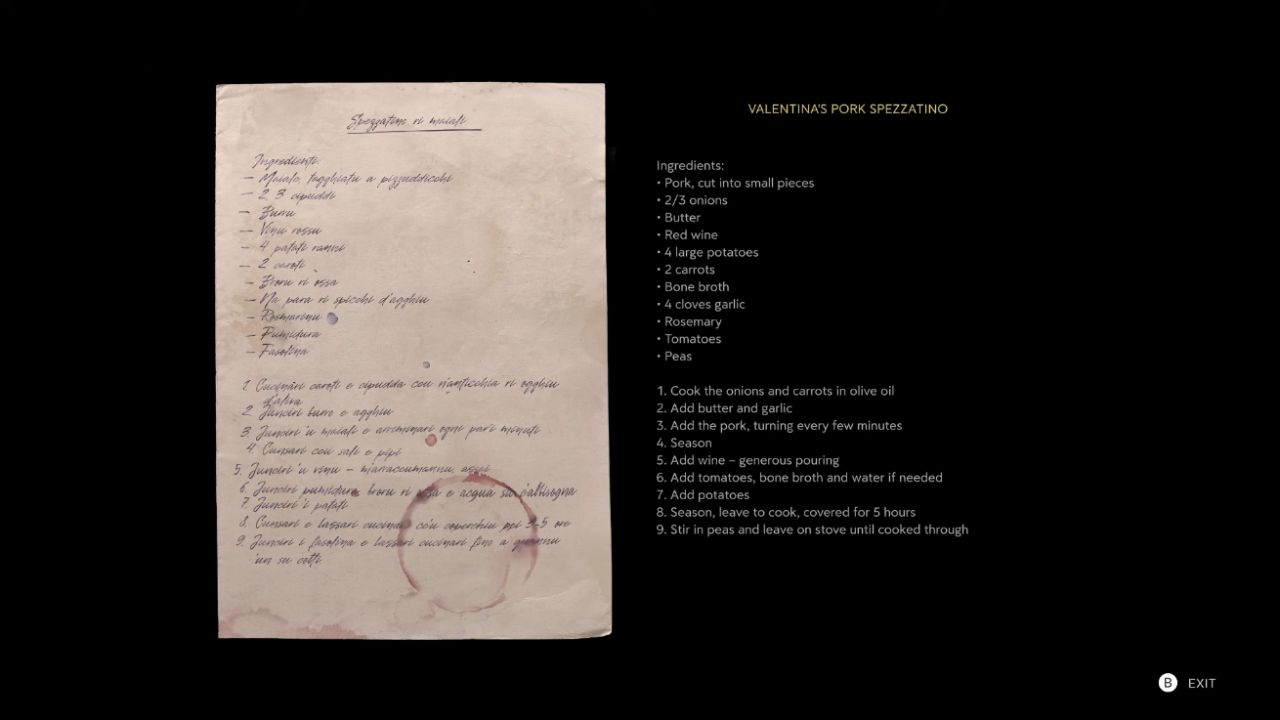 Spezzatino ri maiali
Ingredienti:
– Maiale, tagghiatu a pizzuddicchi
– 2, 3 cipuddi
– Burru
– Vinu russu
– 4 patati ranni
– 2 caroti
– Broru ri ossa
– Na para ri spicchi d'agghiu
– Rosmarinu
– Pumidura
– Fasolina
1. Cucinari caroti e cipudda cou n'anticchia ri ogghiu
d'aliva
2. Junciri burru e agghiu
3. Junciri 'u maiali e arriminari ogni pari minuti
4. Cunsari cou sali e pipi
5. Junciri 'u vinu – assai
6. Junciri pumidura broru ri ossa e acqua su s'abbisogna
7. Junciri i patati
8. Cunsari e lassari cucinari co'u coperchiu ppi 3-5 ore
9. Junciri i fasolina e lassari cucinari finu a quannu
'un su cotti
VALENTINA'S PORK SPEZZATINO
Ingredients:
• Pork, cut into small pieces
• 2/3 onions
• Butter
• Red wine
• 4 large potatoes
• 2 carrots
• Bone broth
• 4 cloves garlic
• Rosemary
• Tomatoes
• Peas
1. Cook the onions and carrots in olive oil
2. Add butter and garlic
3. Add the pork, turning every few minutes
4. Season
5. Add wine – generous pouring
6. Add tomatoes, bone broth and water if needed
7. Add potatoes
8. Season, leave to cook, covered for 5 hours
9. Stir in peas and leave on stove until cooked through
B EXIT